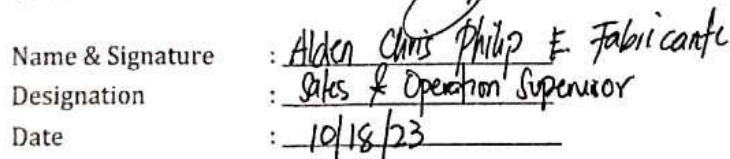 Name & Signature : Alden Chris Philip E. Fabricante
Designation : Sales & Operation Supervisor
Date : 10/18/23